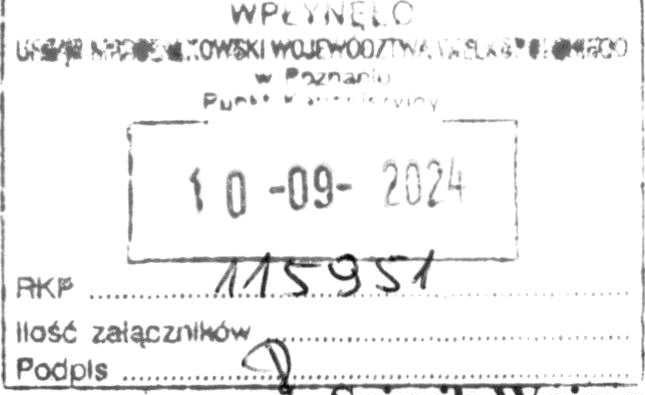 WPŁYNĘŁO
URZĄD MARSZAŁKOWSKI WOJEWÓDZTWA WIELKOPOLSKIEGO
w Poznaniu
Punkt Kancelaryjny
10 -09- 2024
RKP 115951
Ilość załączników
Podpis